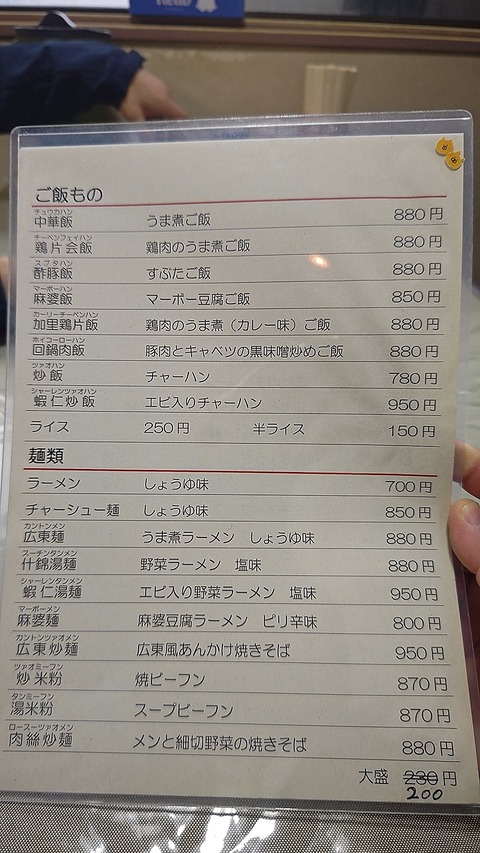 ご飯もの
チュウカハン
中華飯 うま煮ご飯 880円
チーペンフェイハン
鶏片会飯 鶏肉のうま煮ご飯 880円
スブタハン
酢豚飯 すぶたご飯 880円
マーボーハン
麻婆飯 マーボー豆腐ご飯 850円
カーリーチーペンハン
加里鶏片飯 鶏肉のうま煮（カレー味）ご飯 880円
ホイコーローハン
回鍋肉飯 豚肉とキャベツの黒味噌炒めご飯 880円
ツァオハン
炒飯 チャーハン 780円
シャーレンツァオハン
蝦仁炒飯 エビ入りチャーハン 950円
ライス 250円 半ライス 150円
麺類
ラーメン しょうゆ味 700円
チャーシュー麺 しょうゆ味 850円
カントンメン
広東麺 うま煮ラーメン しょうゆ味 880円
スーチンタンメン
什錦湯麺 野菜ラーメン 塩味 880円
シャーレンタンメン
蝦仁湯麺 エビ入り野菜ラーメン 塩味 950円
マーボーメン
麻婆麺 麻婆豆腐ラーメン ピリ辛味 800円
カントンツァオメン
広東炒麺 広東風あんかけ焼きそば 950円
ツァオミーフン
炒米粉 焼ビーフン 870円
タンミーフン
湯米粉 スープビーフン 870円
ロースーツァオメン
肉絲炒麺 メンと細切野菜の焼きそば 880円
大盛 230円
200